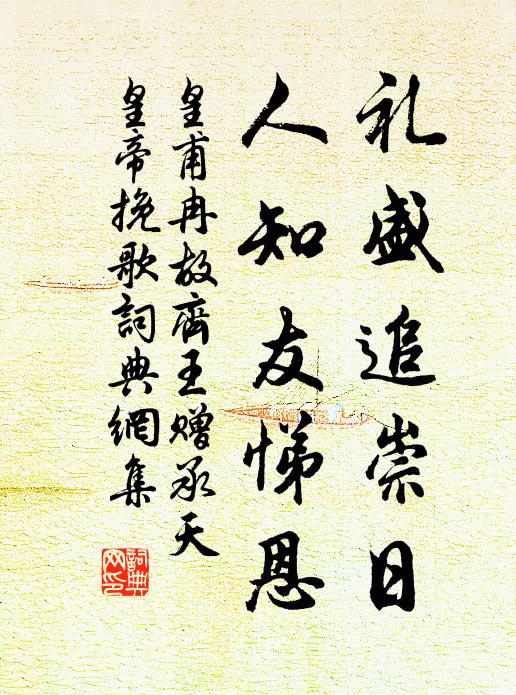 礼盛追崇日
人知友悌恩
皇甫冉故齊王贈承天
皇帝挽歌詞典網集
詞典
网印